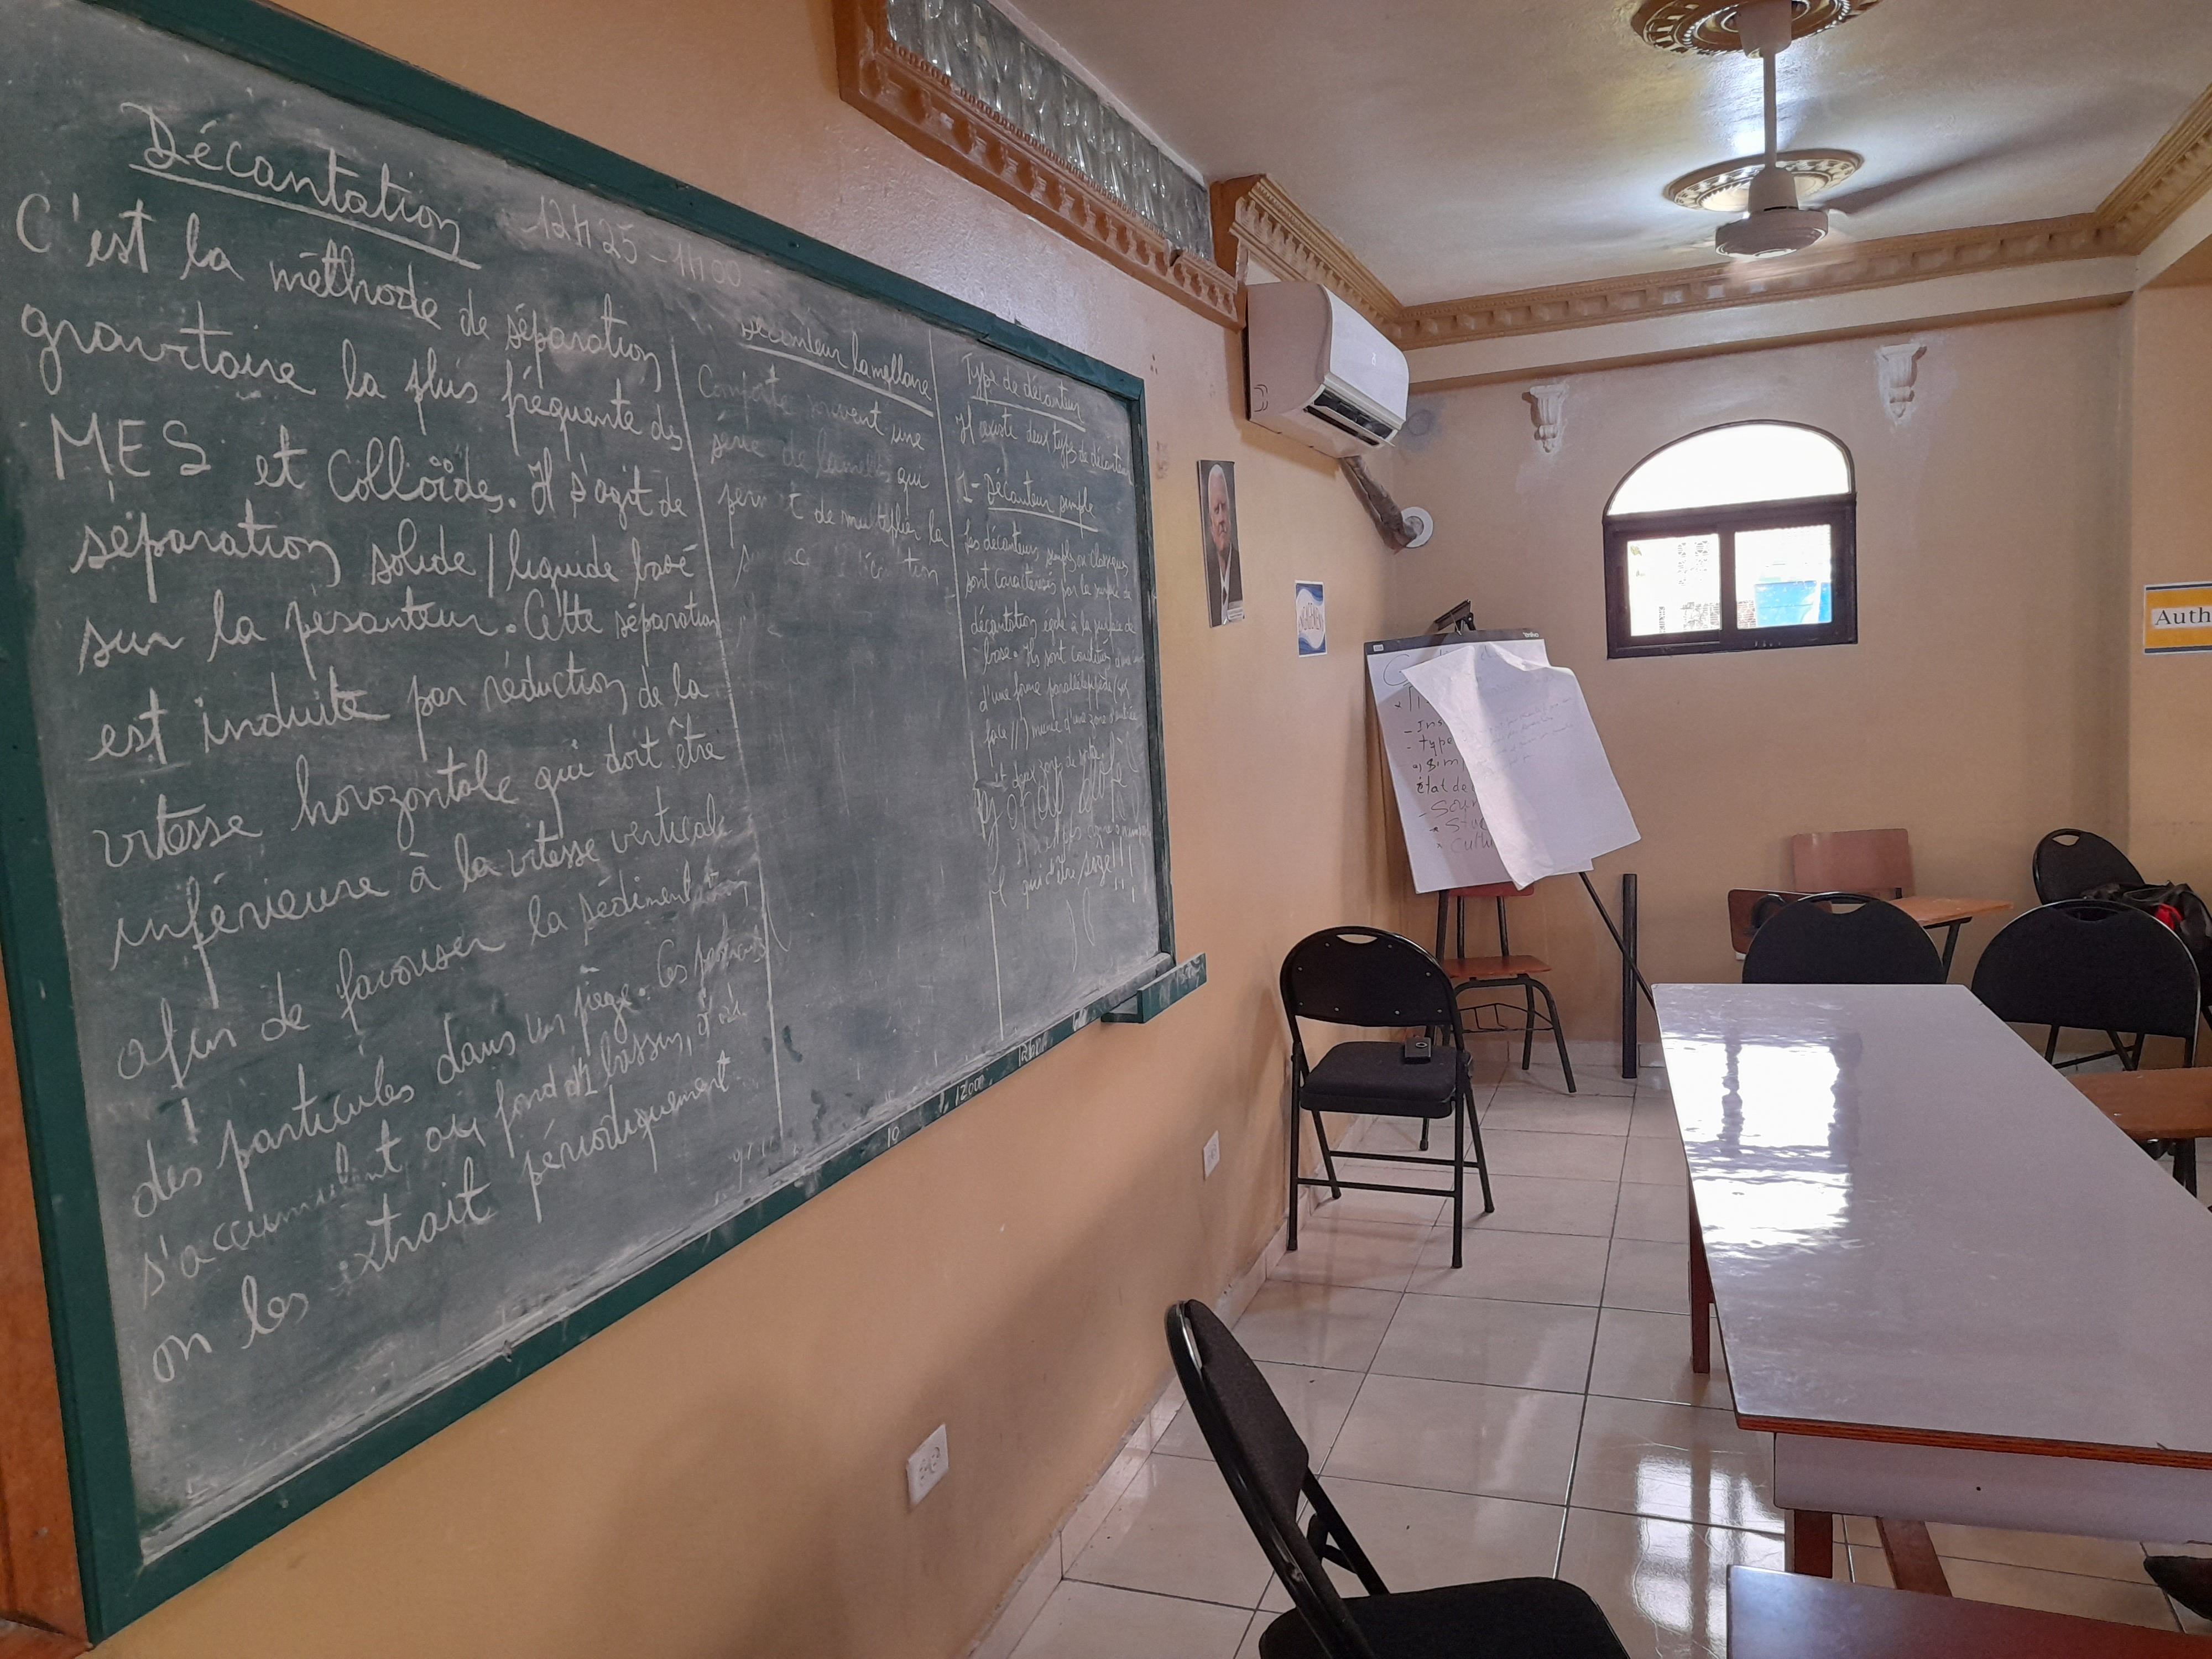 Décantation
12h25 - 1h00
C'est la méthode de séparation
gravitaire la plus fréquente des
MES et Colloïdes. Il s'agit de
séparation solide / liquide basé
sur la pésanteur. Cette séparation
est induite par réduction de la
vitesse horozontale qui doit être
inférieure à la vitesse verticale
afin de favoriser la sédimentation
des particules dans un piège. Ces particules
s'accumulent au fond du bassin, d'où
on les extrait périodiquement
Décanteur lamellaire
Comporte souvent une
série de lamelles qui
permet de multiplier la
Type de décanteur
Il existe deux types de décanteur
1- Décanteur simple
Les décanteurs simples ou classiques
sont caractérisés par la surface de
décantation égale à la surface de
base. Ils sont constitués
d'une forme parallélépipède
face //) munie d'une zone d'entrée
et deux zone de sortie
qui d'être sage!!!
- Ins
- type
état de
Auth